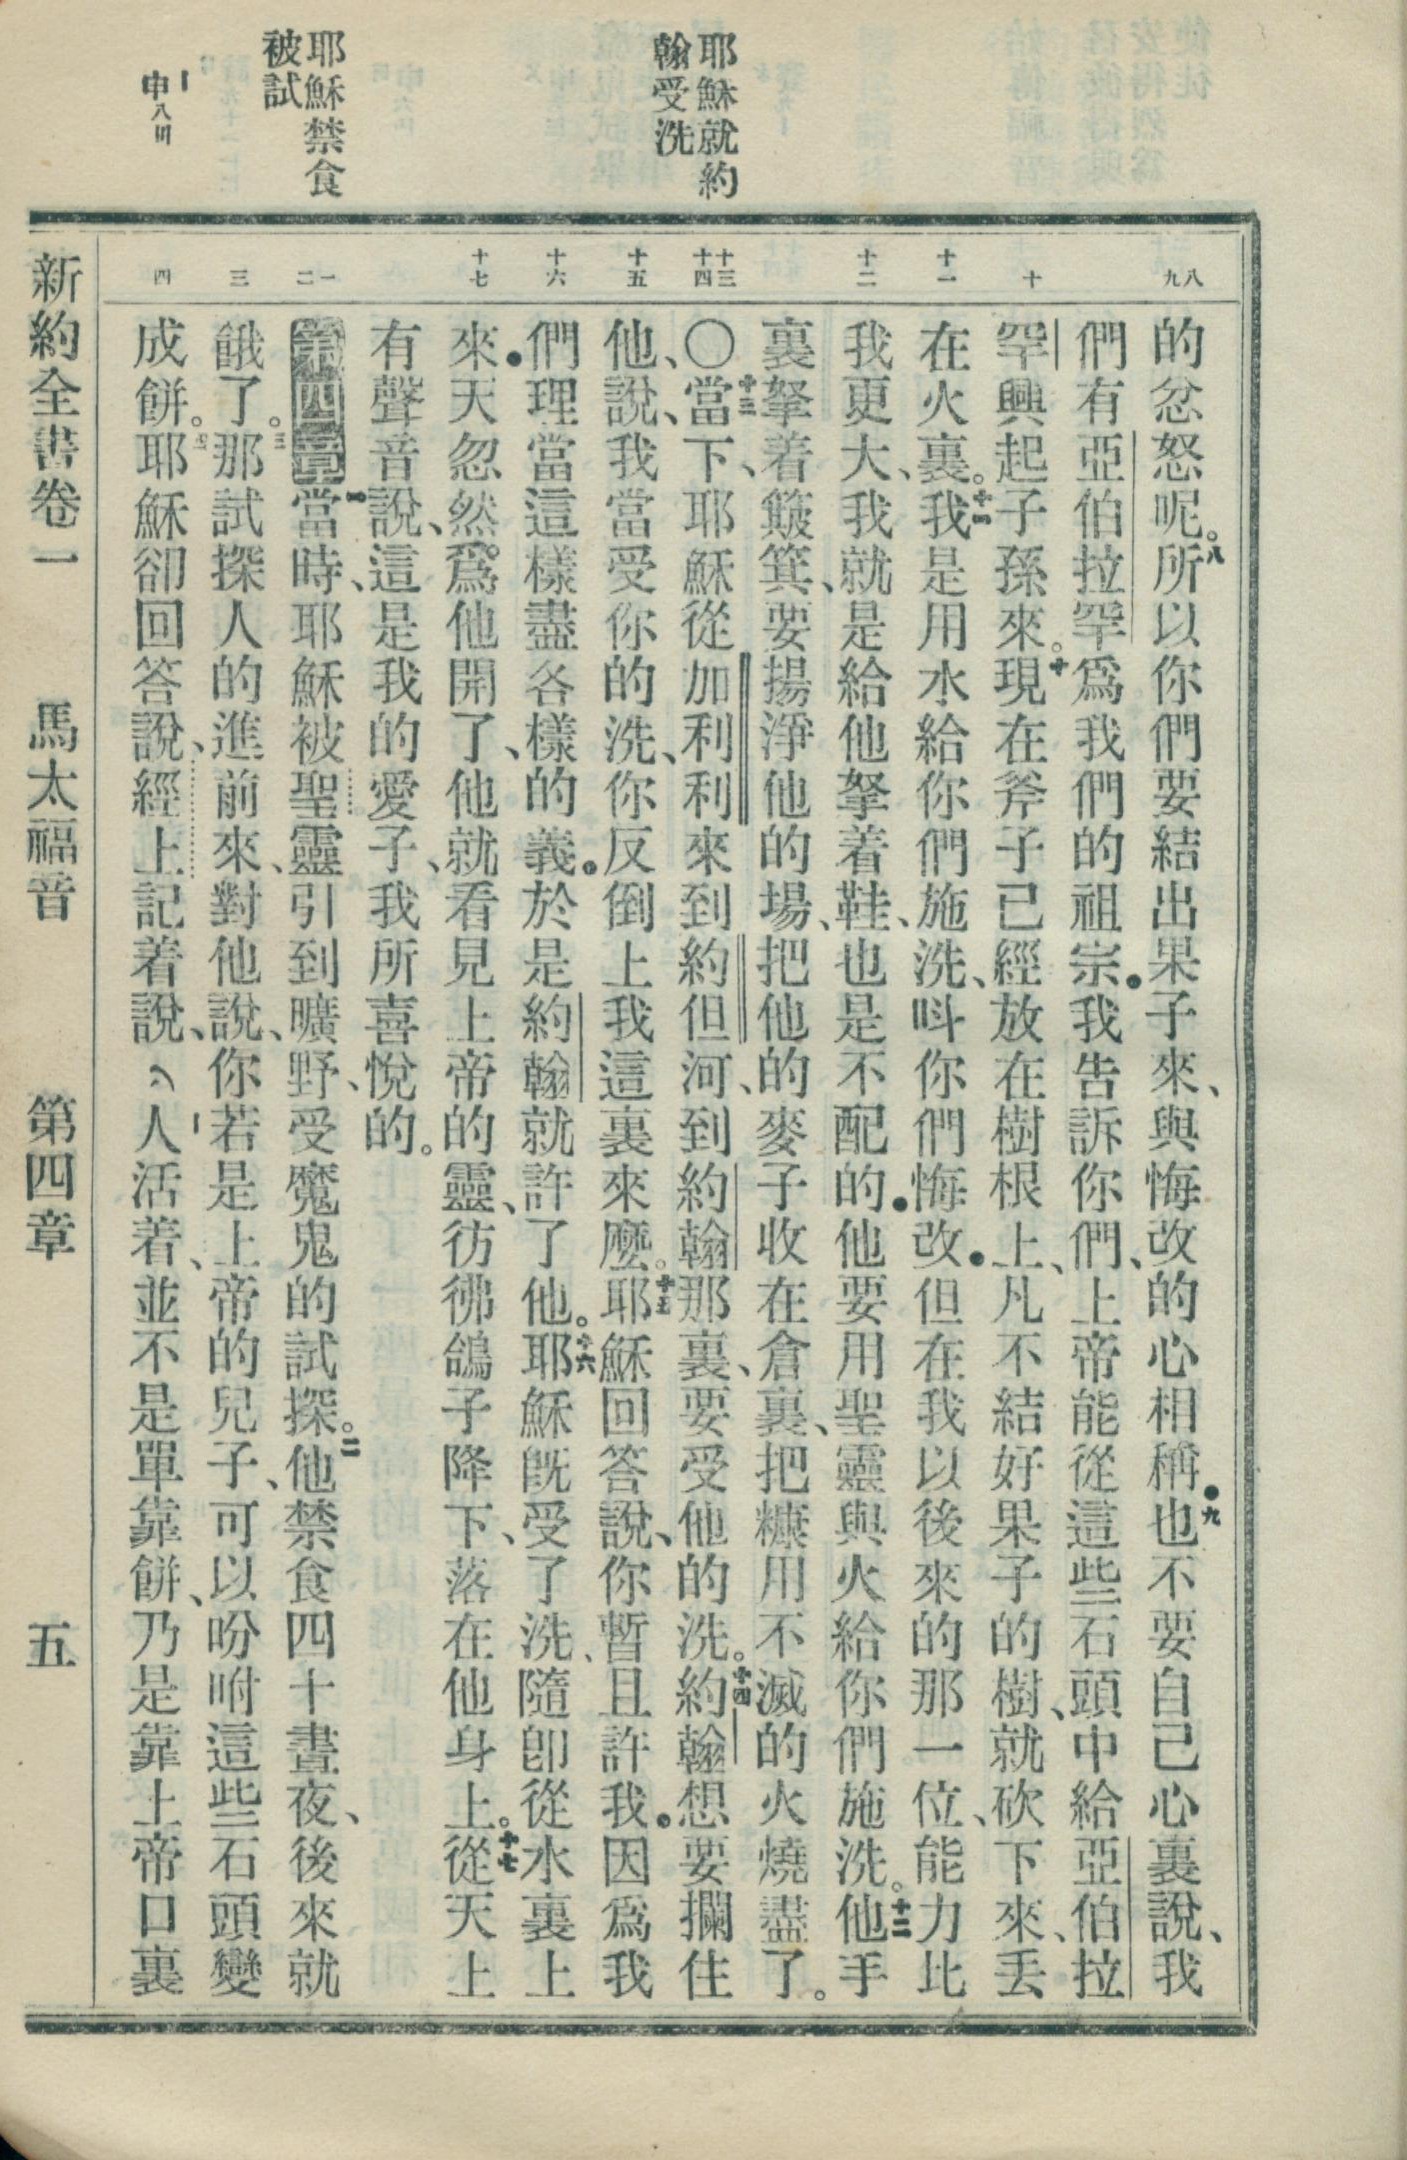 耶穌就約
翰受洗
耶穌禁食
被試
申八
八
九
十
十一
十二
十三
十四
十五
十六
十七
一
二
三
四
的忿怒呢。八所以你們要結出果子來、與悔改的心相稱●九也不要自己心裏說、我
們有亞伯拉罕爲我們的祖宗●我告訴你們、上帝能從這些石頭中給亞伯拉
罕興起子孫來。十現在斧子已經放在樹根上、凡不結好果子的樹、就砍下來、丟
在火裏。十一我是用水給你們施洗、呌你們悔改●但在我以後來的那一位、能力比
我更大、我就是給他拏着鞋、也是不配的●他要用聖靈與火給你們施洗。十二他手
裏拏着簸箕、要揚淨他的場、把他的麥子收在倉裏、把糠用不滅的火燒盡了。
〇十三當下、耶穌從加利利來到約但河、到約翰那裏、要受他的洗。十四約翰想要攔住
他、說、我當受你的洗、你反倒上我這裏來麼。十五耶穌回答說、你暫且許我●因爲我
們理當這樣盡各樣的義●於是約翰就許了他。十六耶穌旣受了洗、隨卽從水裏上
來●天忽然爲他開了、他就看見上帝的靈、彷彿鴿子降下、落在他身上。十七從天上
有聲音說、這是我的愛子、我所喜悅的。
第四章一當時、耶穌被聖靈引到曠野、受魔鬼的試探。二他禁食四十晝夜、後來就
餓了。三那試探人的進前來、對他說、你若是上帝的兒子、可以吩咐這些石頭變
成餅。四耶穌卻回答說、經上記着說、人活着、並不是單靠餅、乃是靠上帝口裏
新約全書卷一 馬太福音 第四章 五